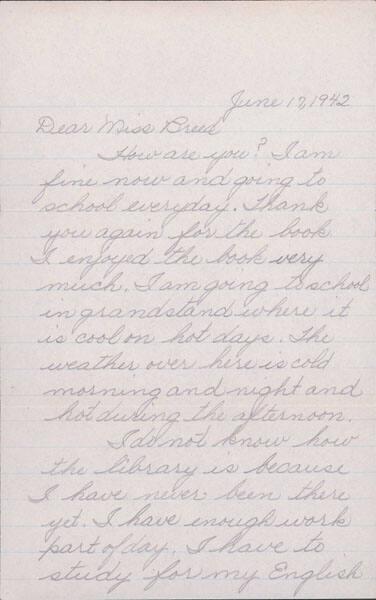 June 17, 1942
Dear Miss Breed
How are you? I am
fine now and going to
school everyday. Thank
you again for the book
I enjoyed the book very
much. I am going to school
in grandstand where it
is cool on hot days. The
weather over here is cold
morning and night and
hot during the afternoon.
I do not know how
the library is because
I have never been there
yet. I have enough work
part of day. I have to
study for my English